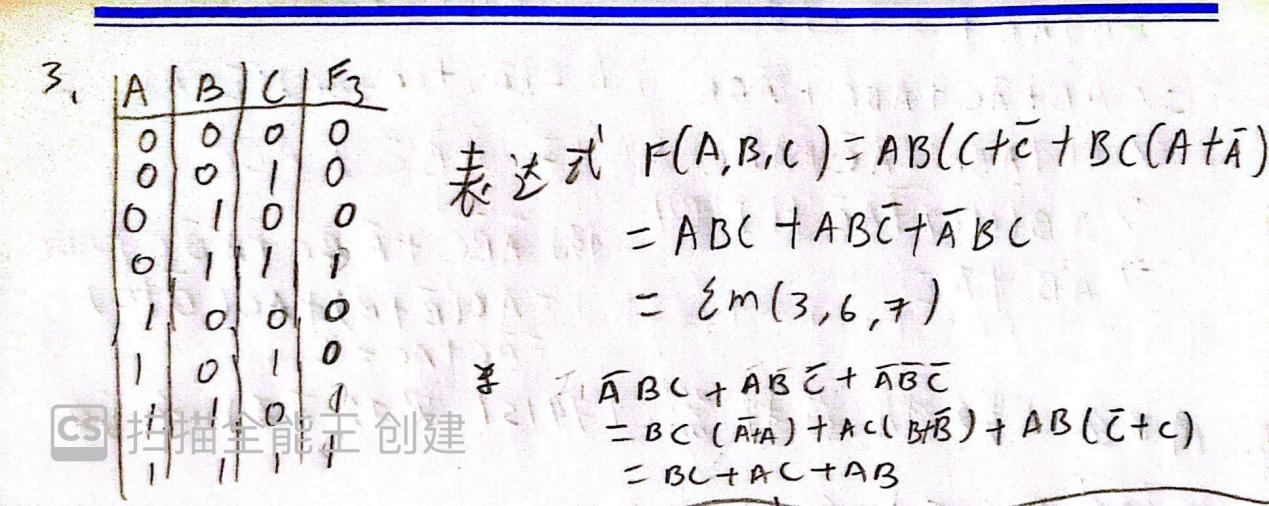 3. A B C F₃
0 0 0 0
0 0 1 0
0 1 0 0
0 1 1 1
1 0 0 0
1 0 1 0
1 1 0 1
1 1 1 1
表达式 F(A,B,C)=AB(C+C̅+BC(A+A̅)
=ABC+ABC̅+A̅BC
=Σm(3,6,7)
A̅BC+ABC̅+A̅B̅C̅
=BC(A̅+A)+AC(B+B̅)+AB(C̅+C)
=BC+AC+AB
CS 扫描全能王 创建